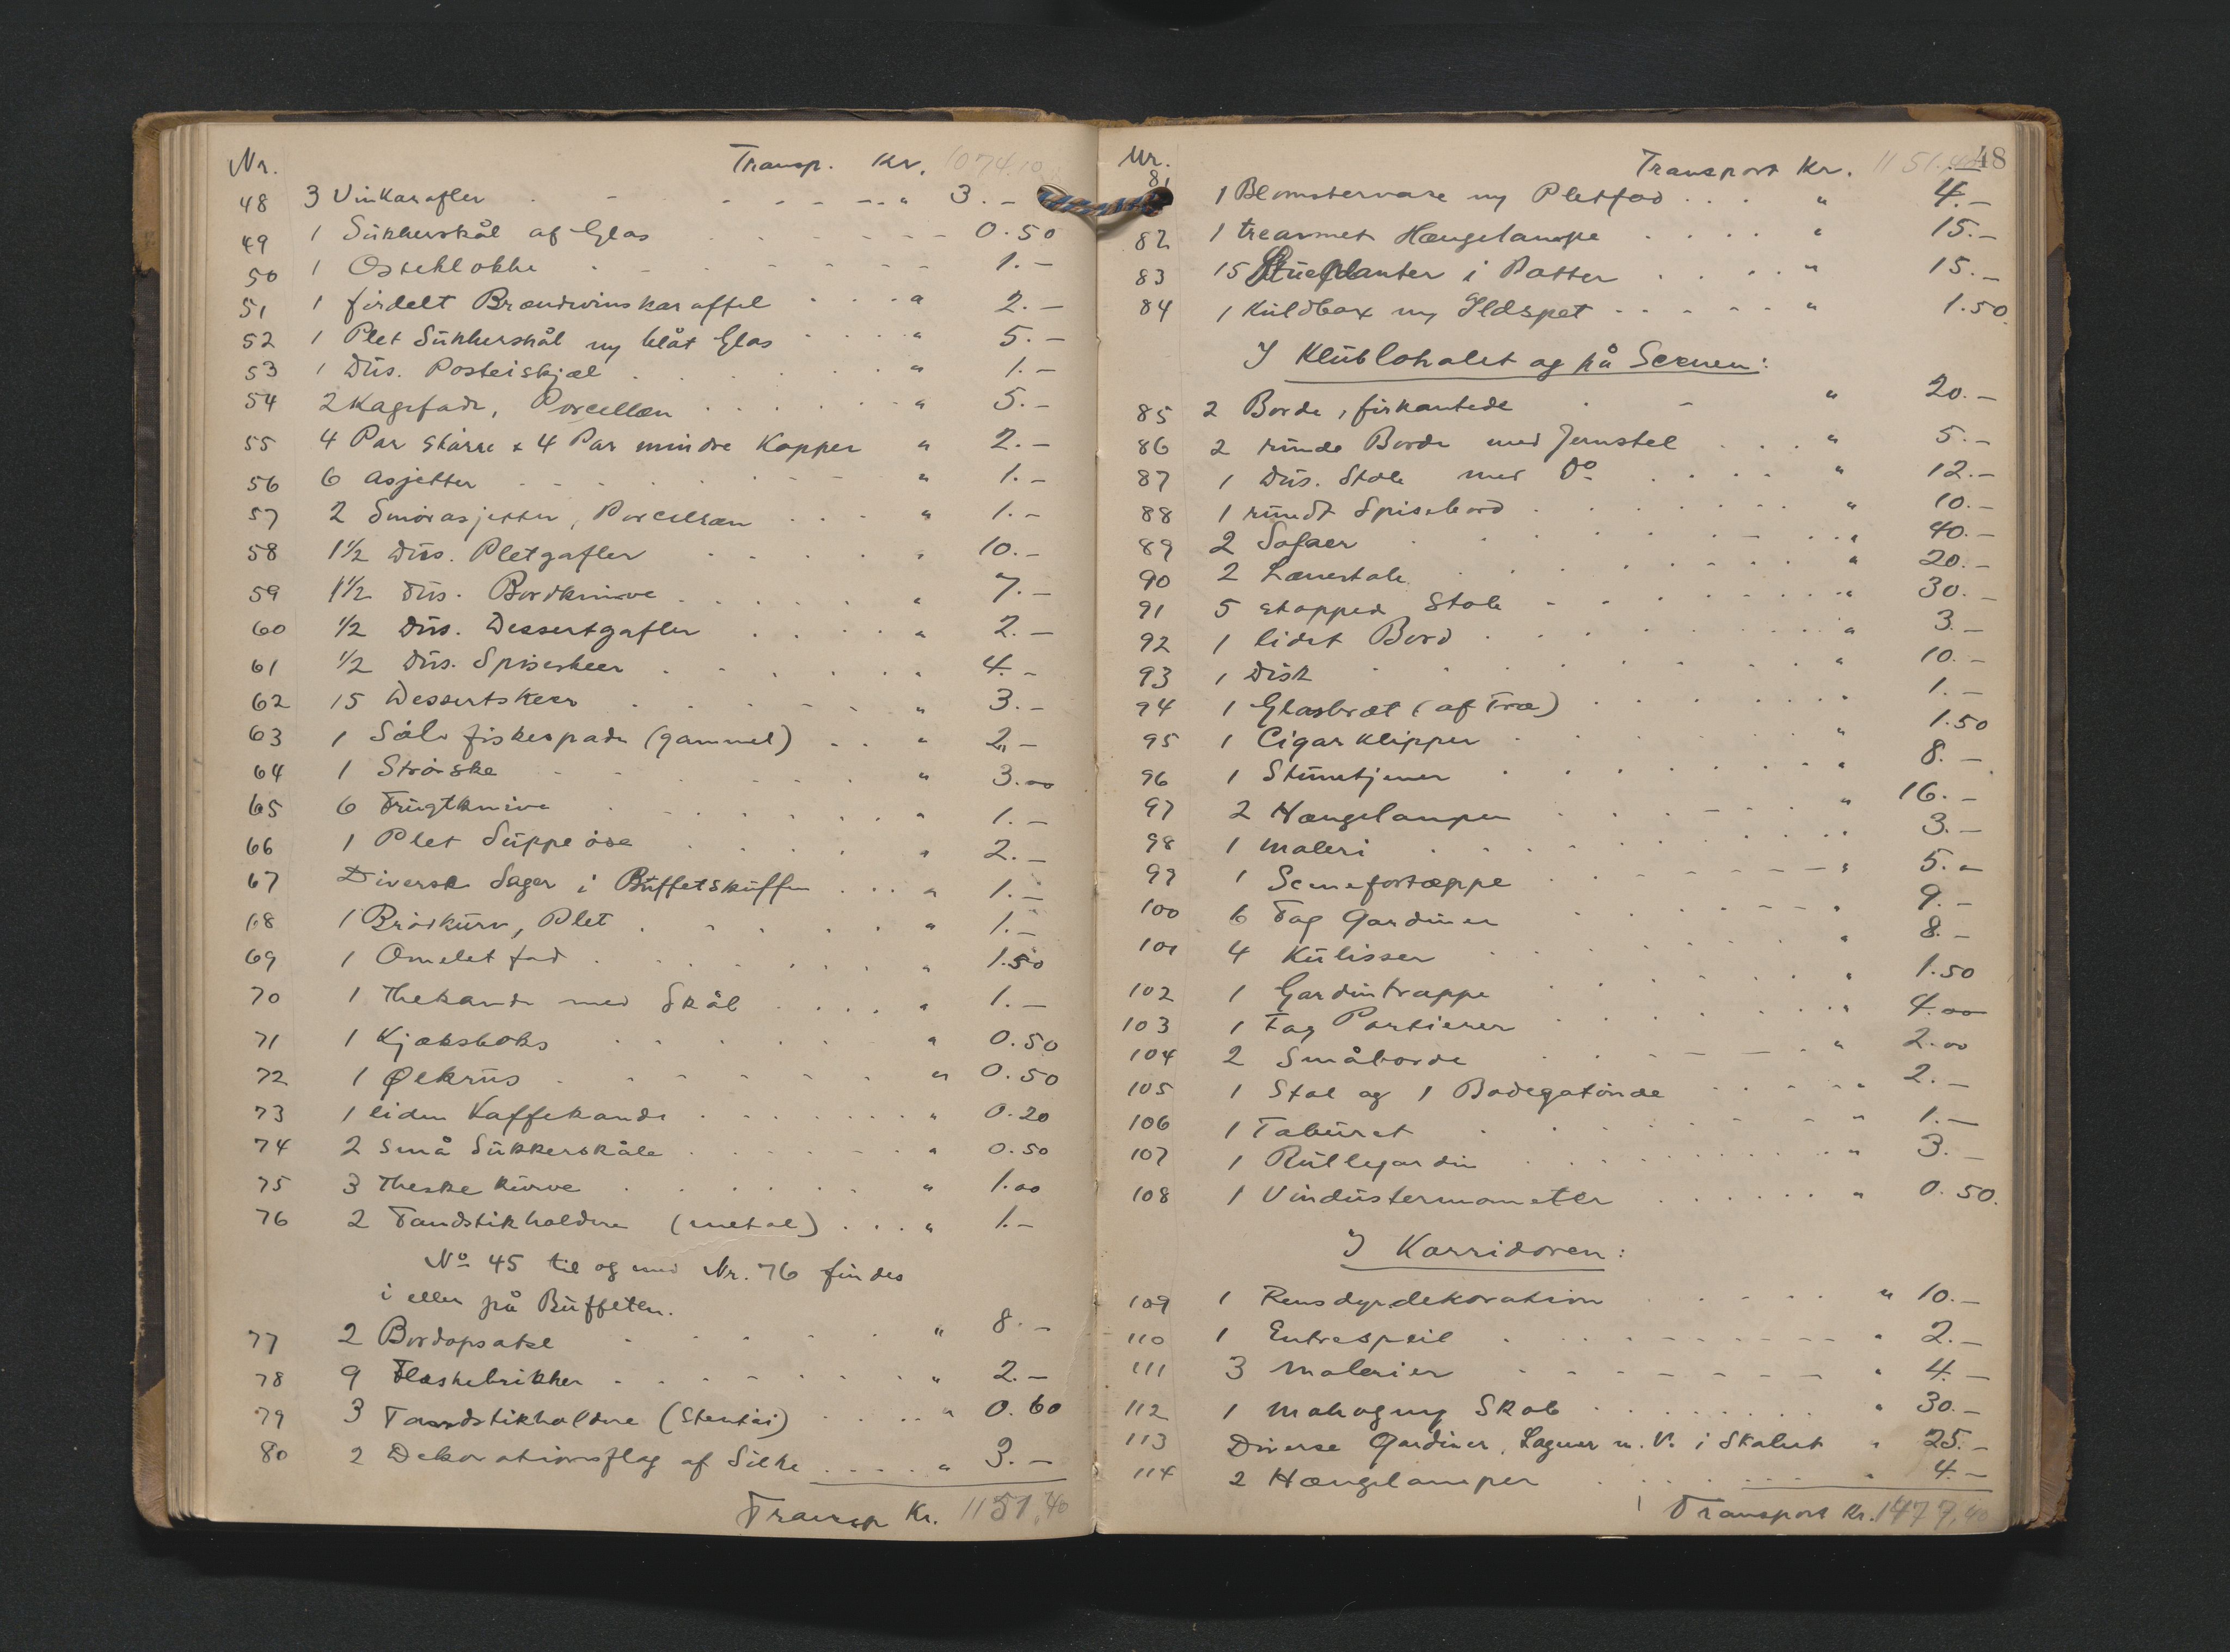 Nr. Transp. Kr. 1074.10
48 3 Vinkarafler " 3.-
49 1 Sukkerskål af Glas 0.50
50 1 Osteklokke 1.-
51 1 firdelt Brændevinskaraffel " 2.-
52 1 Plet Sukkerskål m/ blåt Glas " 5.-
53 1 Dus. Posteiskjæl " 1.-
54 2 Kagefade, Porcellæn " 5.-
55 4 Par større & 4 Par mindre Kopper " 2.-
56 6 Asjetter " 1.-
57 2 Smørasjetter, Porcellæn " 1.-
58 1½ Dus. Pletgafler " 10.-
59 1½ Dus. Bordknive " 7.-
60 ½ Dus. Dessertgafler " 2.-
61 ½ Dus. Spiseskeer " 4.-
62 15 Dessertskeer " 3.-
63 1 Sølv fiskespade (gammel) " 2.-
64 1 Strøske " 3.00
65 6 Frugtknive " 1.-
66 1 Plet Suppeøse " 2.-
67 Diverse Sager i Buffetskuffen " 1.-
68 1 Brødkurv, Plet " 1.-
69 1 Omelet fad " 1.50
70 1 Thekande med Skål " 1.-
71 1 Kjæksboks " 0.50
72 1 Ølkrus " 0.50
73 1 liden Kaffekande " 0.20
74 2 små Sukkerskåle " 0.50
75 3 Theske kurve " 1.00
76 2 Tandstikholdere (metal) " 1.-
No 45 til og med Nr. 76 findes
i eller på Buffeten.
77 2 Bordopsatse " 8.-
78 9 Flaskebrikker " 2.-
79 3 Tandstikholdere (Stentøi) " 0.60
80 2 Dekorationsflag af Silke " 3.-
Transp Kr. 1151,40
48
Nr. Transport Kr. 1151,40
81 1 Blomstervase m/ Pletfod " 4.-
82 1 trearmet Hængelampe " 15.-
83 15 Stueplanter i Potter " 15.-
84 1 Kulboax m/ Ildspet " 1.50
I Klublokalet og på Scenen:
85 2 Borde, firkantede " 20.-
86 2 runde Borde med Jernstel " 5.-
87 1 Dus. Stole med Do " 12.-
88 1 rundt Spisebord " 10.-
89 2 Sofaer " 40.-
90 2 Lænestole " 20.-
91 5 stoppede Stole " 30.-
92 1 lidet Bord " 3.-
93 1 Disk " 10.-
94 1 Glasbræt (af Træ) " 1.-
95 1 Cigarklipper " 1.50
96 1 Stumtjener " 8.-
97 2 Hængelamper " 16.-
98 1 Maleri " 3.-
99 1 Scenefortæppe " 5.-
100 6 Fag Gardiner " 9.-
101 4 Kulisser " 8.-
102 1 Gardintrappe " 1.50
103 1 Fag Portierer " 4.00
104 2 Småborde " 2.00
105 1 Stol og 1 Bodegatønde " 2.-
106 1 Taburet " 1.-
107 1 Rullegardin " 3.-
108 1 Vindustermometer " 0.50.
I Korridoren:
109 1 Rensdyrdekoration " 10.-
110 1 Entrespeil " 2.-
111 3 Malerier " 4.-
112 1 Mahogny Skab " 30.-
113 Diverse Gardiner, Lagner m. V. i Skabet " 25.-
114 2 Hængelamper " 4.-
Transport Kr. 1477,40